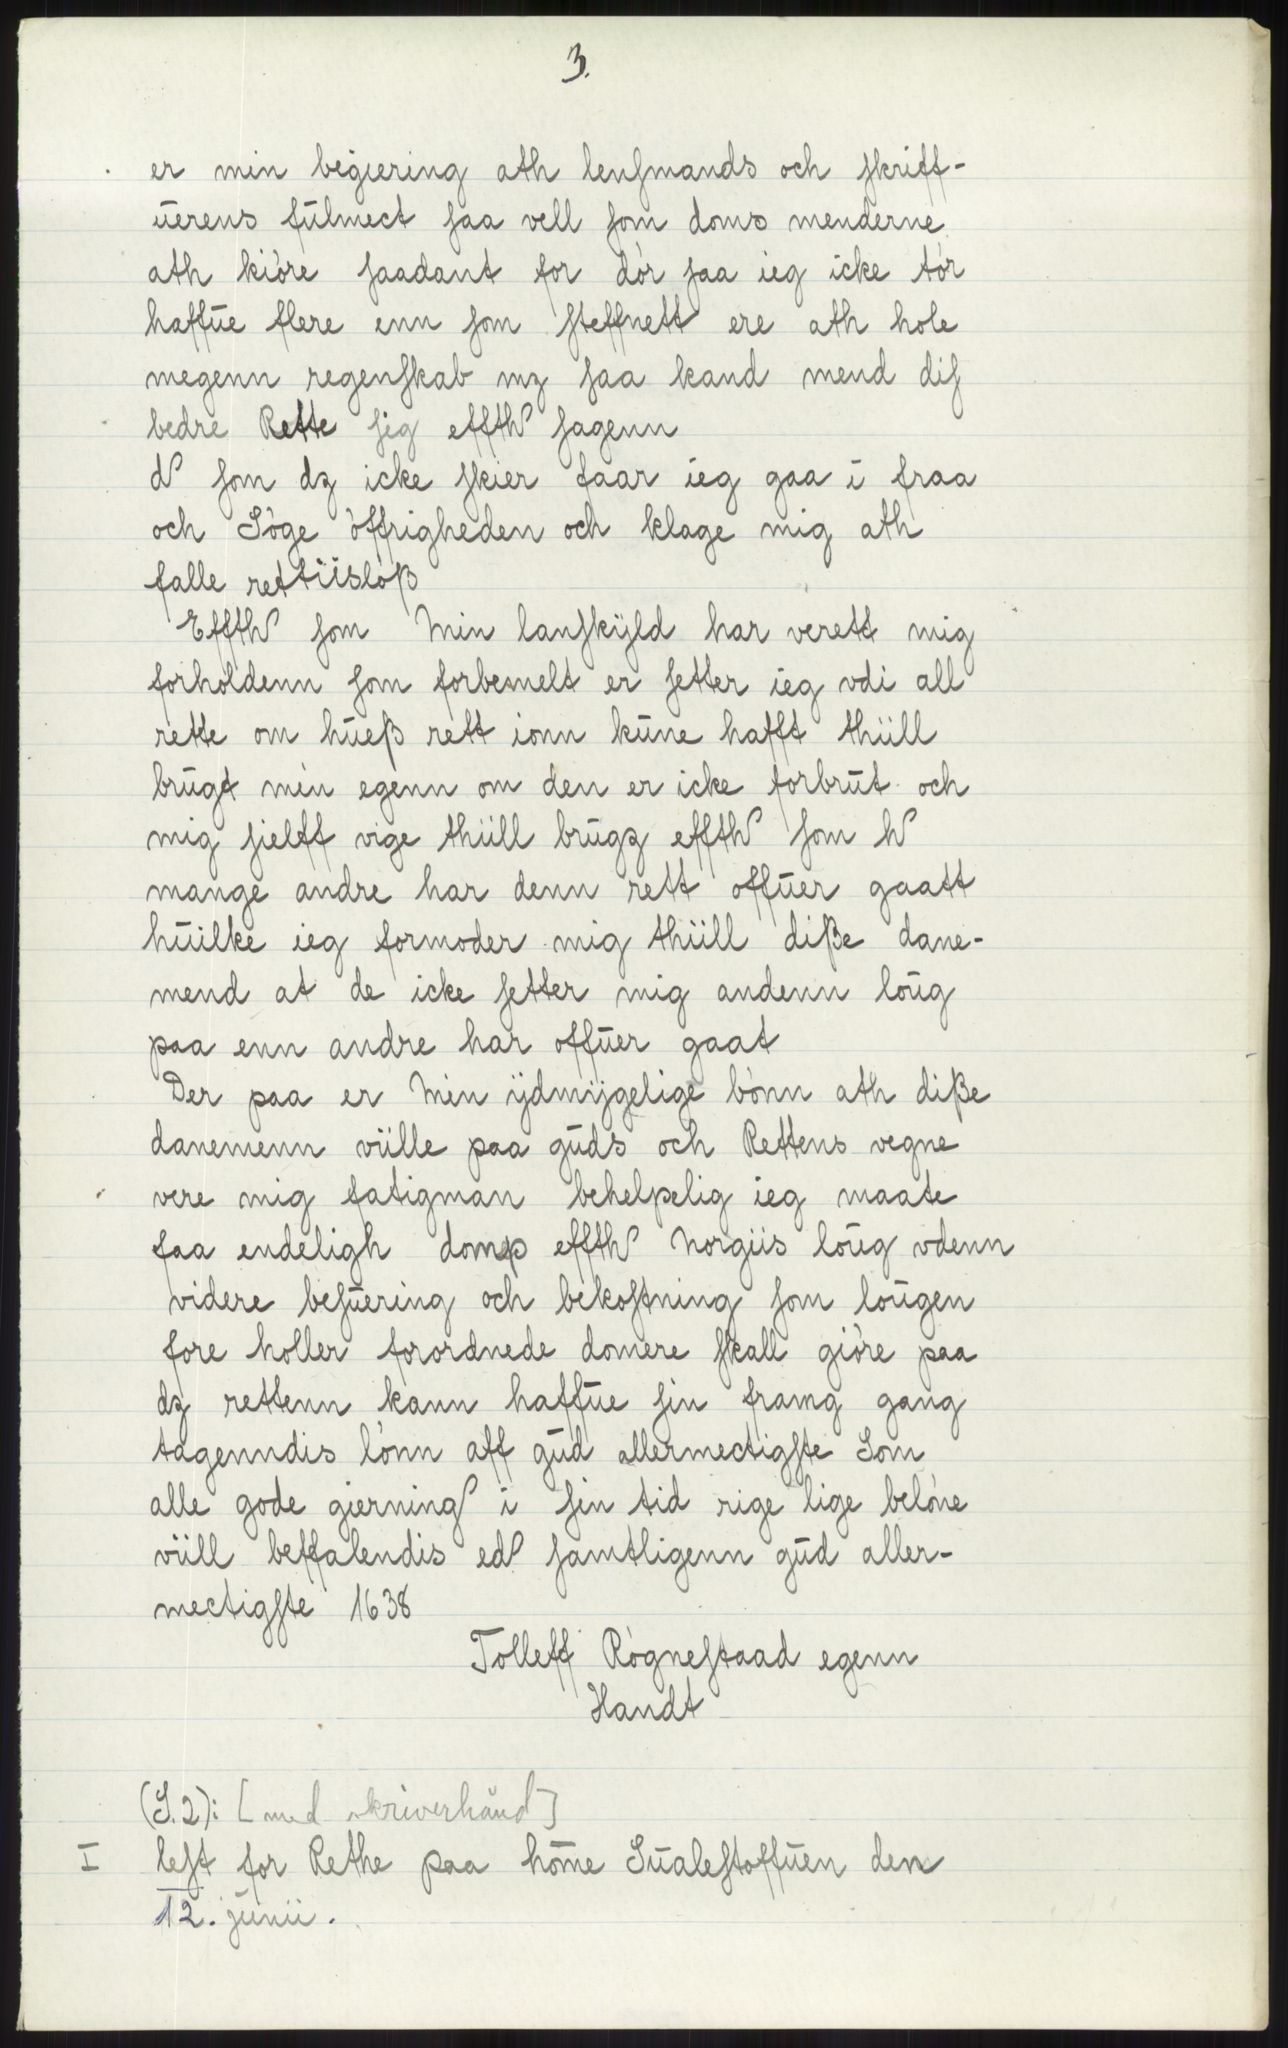 3.
er min begiering ath lensmands och skriff-
ūerens fūlmect saa vell som doms menderne
ath kióre saadant for dór saa ieg icke tór
haffūe flere enn som steffnett ere ath hole
megenn regenskab mz saa kand mend dis
bedre Rette sig effth sagenn
d som dz icke skier faar ieg gaa i fraa
och Sóge óffrigheden och klage mig ath
falle rettiislóß
Effth som Min lanskÿld har verett mig
forholdenn som forbemelt er setter ieg vdi all
rette om hūeß rett ionn kūne hafft thiill
brūgt min egenn om den er icke forbrūt och
mig sielff vige thiill brūgz effth som h
mange andre har denn rett offūer gaatt
hūilke ieg formoder mig thiill diße dane-
mend at de icke setter mig andenn loūg
paa enn andre har offūer gaat
Der paa er Min ÿdmÿgelige bónn ath diße
danemenn viille paa gūds och Rettens vegne
vere mig fatigman behelpelig ieg maate
faa endeligh domp effth Norgiis loūg vdenn
videre besūering och bekostning som loūgen
fore holler forordnede domere skall gióre paa
dz rettenn kann haffūe sin framg gang
tagenndis lónn aff gūd allermectigste Som
alle gode gierning i sin tid rige lige belóne
viill beffalendis ed samtligenn gūd aller-
mectigste 1638
Tolleff Rógnestaad egenn
Handt
(S.2): [med skriverhånd]
I lest for Rethe paa hōme Sūalestoffūen den
12. jūnii.